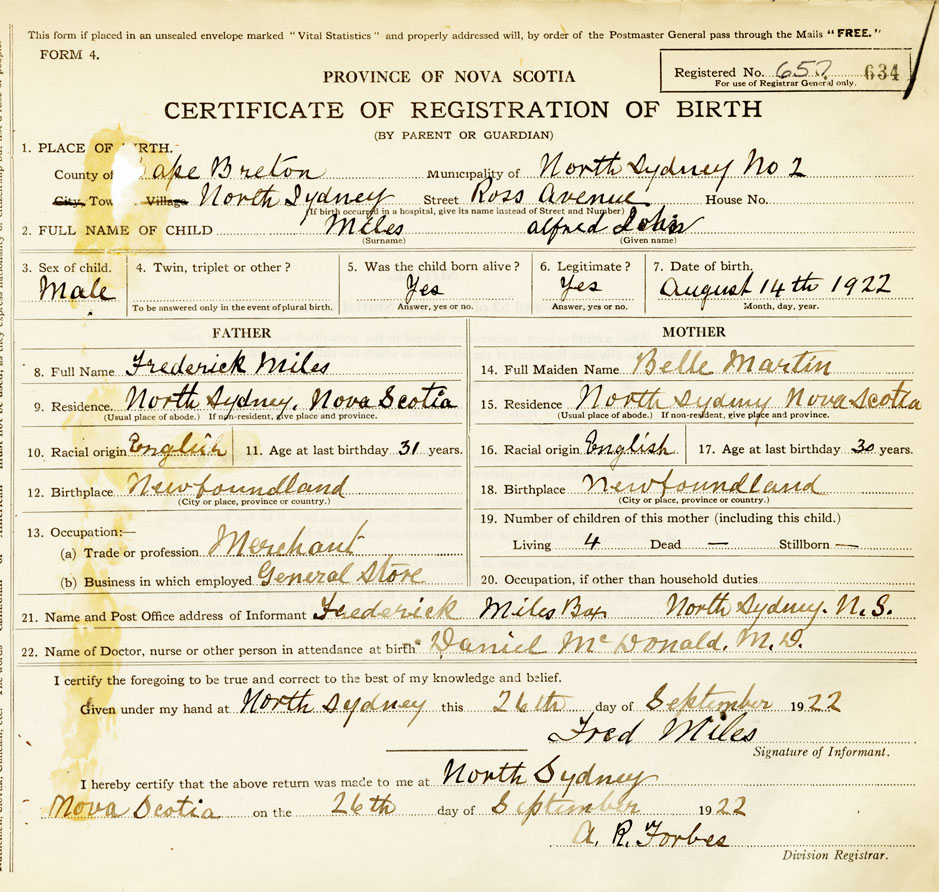 This form if placed in an unsealed envelope marked "Vital Statistics" and properly addressed will, by order of the Postmaster General pass through the Mails "FREE."
FORM 4.
Registered No. 634
For use of Registrar General only.
PROVINCE OF NOVA SCOTIA
CERTIFICATE OF REGISTRATION OF BIRTH
(BY PARENT OR GUARDIAN)
1. PLACE OF BIRTH.
County of Cape Breton Municipality of North Sydney No 2
City, Town Village North Sydney Street Ross Avenue House No.
(If birth occurred in a hospital, give its name instead of Street and Number)
2. FULL NAME OF CHILD Miles Alfred John
(Surname) (Given name)
3. Sex of child. 4. Twin, triplet or other? 5. Was the child born alive? 6. Legitimate? 7. Date of birth.
Male Yes Yes August 14th 1922
To be answered only in the event of plural birth. Answer, yes or no. Answer, yes or no. Month, day, year.
FATHER
8. Full Name Frederick Miles
9. Residence North Sydney, Nova Scotia
(Usual place of abode.) If non-resident, give place and province.
10. Racial origin English 11. Age at last birthday 31 years.
12. Birthplace Newfoundland
(City or place, province or country.)
13. Occupation:—
(a) Trade or profession Merchant
(b) Business in which employed General Store
MOTHER
14. Full Maiden Name Belle Martin
15. Residence North Sydney Nova Scotia
(Usual place of abode.) If non-resident, give place and province.
16. Racial origin English 17. Age at last birthday 30 years.
18. Birthplace Newfoundland
(City or place, province or country.)
19. Number of children of this mother (including this child.)
Living 4 Dead — Stillborn —
20. Occupation, if other than household duties
21. Name and Post Office address of Informant Frederick Miles Box North Sydney. N.S.
22. Name of Doctor, nurse or other person in attendance at birth Daniel McDonald, M.D.
I certify the foregoing to be true and correct to the best of my knowledge and belief.
Given under my hand at North Sydney this 26th day of September 1922
Fred Miles
Signature of Informant.
I hereby certify that the above return was made to me at North Sydney
Nova Scotia on the 26th day of September 1922
A. R. Forbes
Division Registrar.